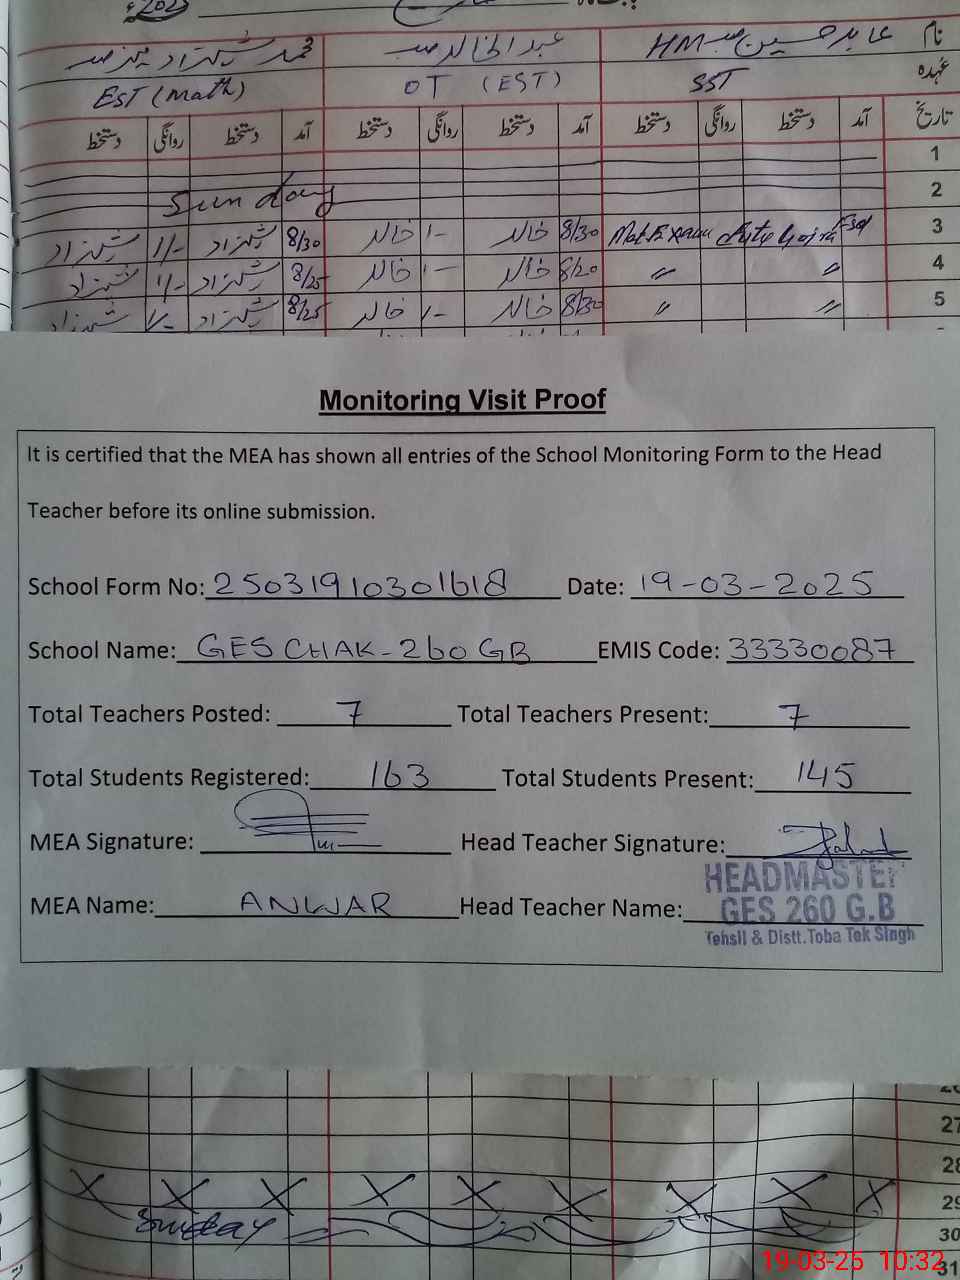 2025
نام عابد حسین صب HM عبدالخالد صب محمد شہزاد صب
عہدہ SST OT (EST) EST (Math)
تاریخ آمد دستخط روانگی دستخط آمد دستخط روانگی دستخط آمد دستخط روانگی دستخط
1
2 Sunday
3 8/30 خالد 1/- خالد 8/30 شہزاد 1/- شہزاد
4 〃 〃 8/20 خالد 1/- خالد 8/25 شہزاد 1/- شہزاد
5 〃 〃 8/30 خالد 1/- خالد 8/25 شہزاد 1/- شہزاد
Monitoring Visit Proof
It is certified that the MEA has shown all entries of the School Monitoring Form to the Head
Teacher before its online submission.
School Form No: 25031910301618 Date: 19-03-2025
School Name: GES CHAK-260 GB EMIS Code: 33330087
Total Teachers Posted: 7 Total Teachers Present: 7
Total Students Registered: 163 Total Students Present: 145
MEA Signature: Head Teacher Signature:
HEADMASTER
MEA Name: ANWAR Head Teacher Name: GES 260 G.B
Tehsil & Distt. Toba Tek Singh
27
28
X X X X X X X X X 29
Sunday 30
31
19-03-25 10:32